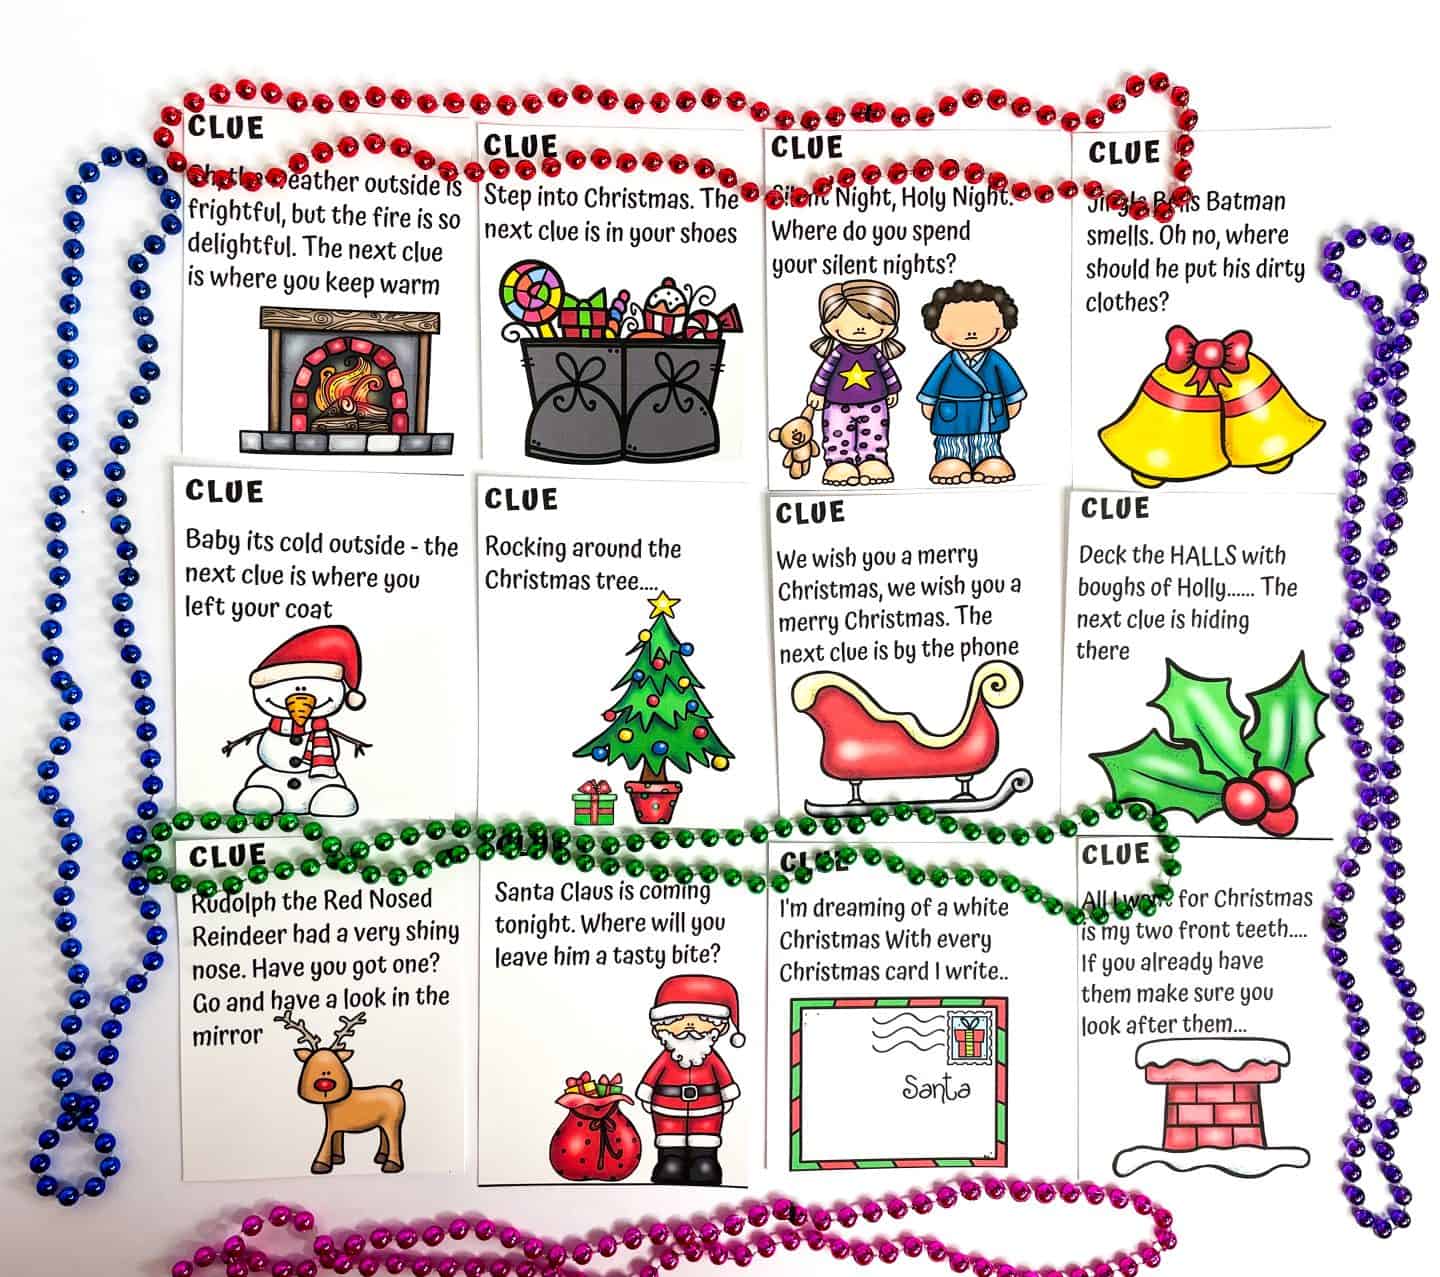 CLUE
weather outside is
frightful, but the fire is so
delightful. The next clue
is where you keep warm
CLUE
Step into Christmas. The
next clue is in your shoes
CLUE
Silent Night, Holy Night.
Where do you spend
your silent nights?
CLUE
Jingle Bells Batman
smells. Oh no, where
should he put his dirty
clothes?
CLUE
Baby its cold outside - the
next clue is where you
left your coat
CLUE
Rocking around the
Christmas tree....
CLUE
We wish you a merry
Christmas, we wish you a
merry Christmas. The
next clue is by the phone
CLUE
Deck the HALLS with
boughs of Holly...... The
next clue is hiding
there
CLUE
Rudolph the Red Nosed
Reindeer had a very shiny
nose. Have you got one?
Go and have a look in the
mirror
CLUE
Santa Claus is coming
tonight. Where will you
leave him a tasty bite?
CLUE
I'm dreaming of a white
Christmas With every
Christmas card I write..
Santa
CLUE
All I want for Christmas
is my two front teeth....
If you already have
them make sure you
look after them...